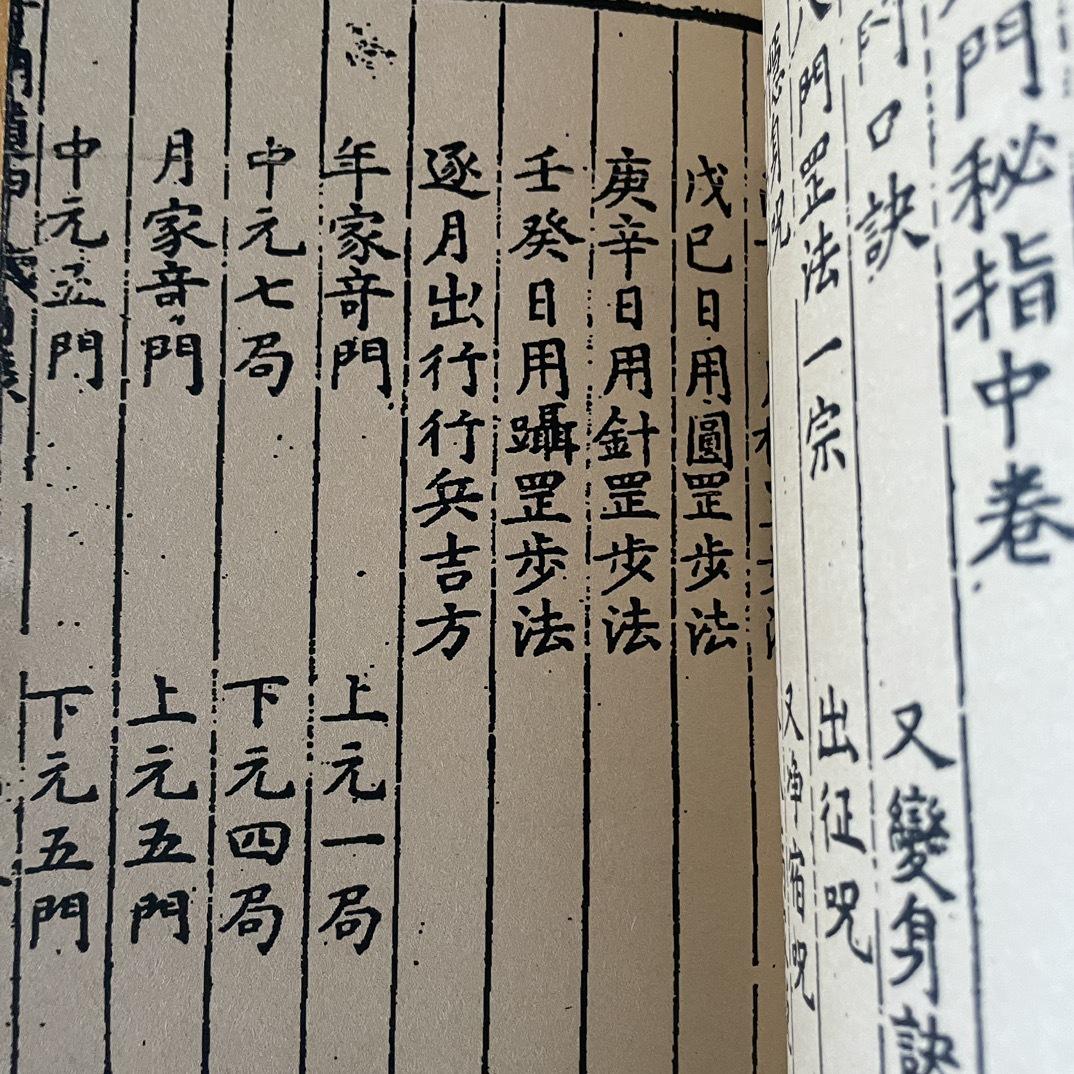 門秘指中卷
口訣
又變身訣
門罡法一宗
出征咒
隱身咒
又淨宿咒
戊己日用圓罡步法
庚辛日用針罡步法
壬癸日用躡罡步法
逐月出行行兵吉方
年家竒門
上元一局
中元七局
下元四局
月家竒門
上元五門
中元五門
下元五門